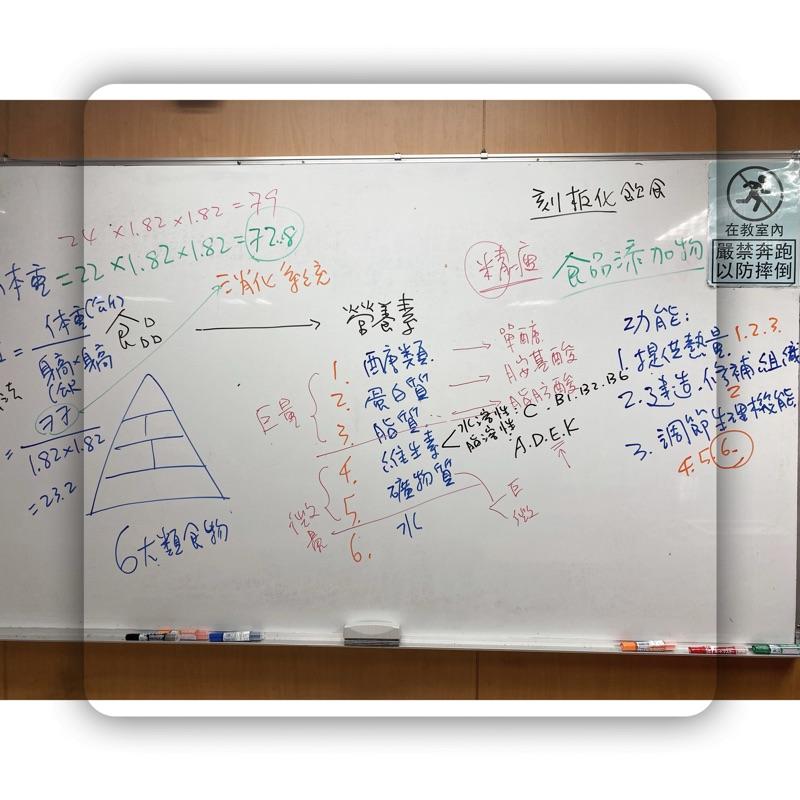 刻板化飲食
24 × 1.82 × 1.82 = 79
體重 = 22 × 1.82 × 1.82 = 72.8
消化系統
精瘦
食品添加物
在教室內
嚴禁奔跑
以防摔倒
= 体重(公斤)
身高×身高
77
1.82×1.82
= 23.2
食品
6大類食物
營養素
巨量
1. 醣類
單醣
2. 蛋白質
胺基酸
3. 脂質
脂肪酸
微量
4. 維生素
水溶性 C. B1. B2. B6
脂溶性 A.D.E.K
5. 礦物質
巨
微
6. 水
功能:
1. 提供熱量. 1.2.3.
2. 建造.修補組織
2
3. 調節生理機能
4.5.6.